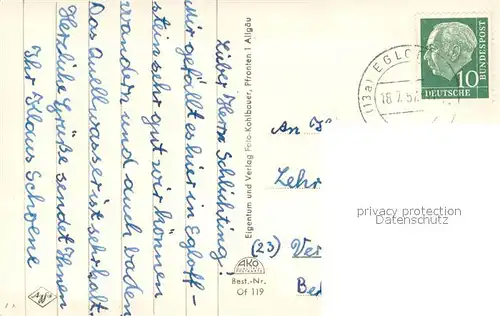 Lieber Herr Schlichting!
Mir gefällt es hier in Egloff-
stein sehr gut wir können
wandern und auch baden
Das Quellwasser ist sehr kalt.
Herzliche Grüße sendet Ihnen
Ihr Klaus Schoene
Eigentum und Verlag Foto-Kohlbauer, Pfronten 1 Allgäu
AKO
Best.-Nr.
Of 119
Agfa
(13a) EGLO
18.7.5
10
DEUTSCHE
BUNDESPOST
An
Lehr
(23) Ver
Be
privacy protection
watermark